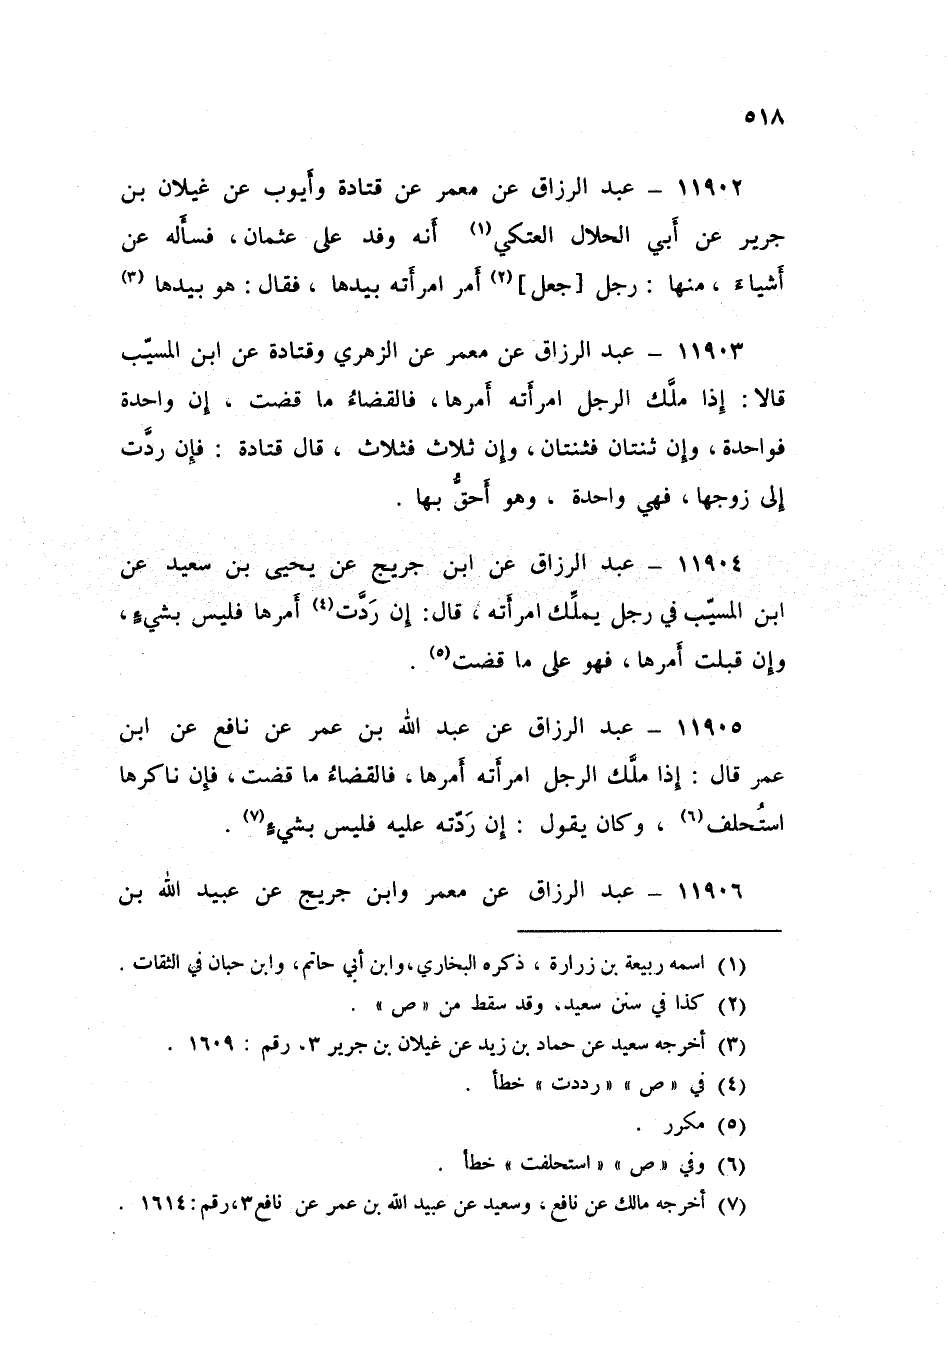 ٥١٨
١١٩٠٢ – عبد الرزاق عن معمر عن قتادة وأيوب عن غيلان بن
جرير عن أبي الحلال العتكي(١) أنه وفد على عثمان، فسأله عن
أشياء ، منها : رجل [جعل](٢) أمر امرأته بيدها ، فقال : هو بيدها (٣)
١١٩٠٣ – عبد الرزاق عن معمر عن الزهري وقتادة عن ابن المسيّب
قالا : إذا ملَّك الرجل امرأته أمرها ، فالقضاءُ ما قضت ، إن واحدة
فواحدة ، وإن ثنتان فثنتان ، وإن ثلاث فثلاث ، قال قتادة : فإن ردَّت
إلى زوجها ، فهي واحدة ، وهو أَحقُّ بها .
١١٩٠٤ – عبد الرزاق عن ابن جريج عن يحيى بن سعيد عن
ابن المسيّب في رجل يملِّك امرأته ، قال: إن رَدَّت(٤) أمرها فليس بشيءٍ ،
وإن قبلت أمرها ، فهو على ما قضت(٥) .
١١٩٠٥ – عبد الرزاق عن عبد الله بن عمر عن نافع عن ابن
عمر قال : إذا ملَّك الرجل امرأته أمرها ، فالقضاءُ ما قضت ، فإن ناكرها
استُحلف(٦) ، وكان يقول : إن رَدّته عليه فليس بشيءٍ(٧) .
١١٩٠٦ – عبد الرزاق عن معمر وابن جريج عن عبيد الله بن
(١) اسمه ربيعة بن زرارة ، ذكره البخاري، وابن أبي حاتم، وابن حبان في الثقات .
(٢) كذا في سنن سعيد، وقد سقط من «ص» .
(٣) أخرجه سعيد عن حماد بن زيد عن غيلان بن جرير ٣، رقم : ١٦٠٩ .
(٤) في «ص» «رددت» خطأ .
(٥) مكرر .
(٦) وفي «ص» «استحلفت» خطأ .
(٧) أخرجه مالك عن نافع ، وسعيد عن عبيد الله بن عمر عن نافع ٣، رقم: ١٦١٤ .